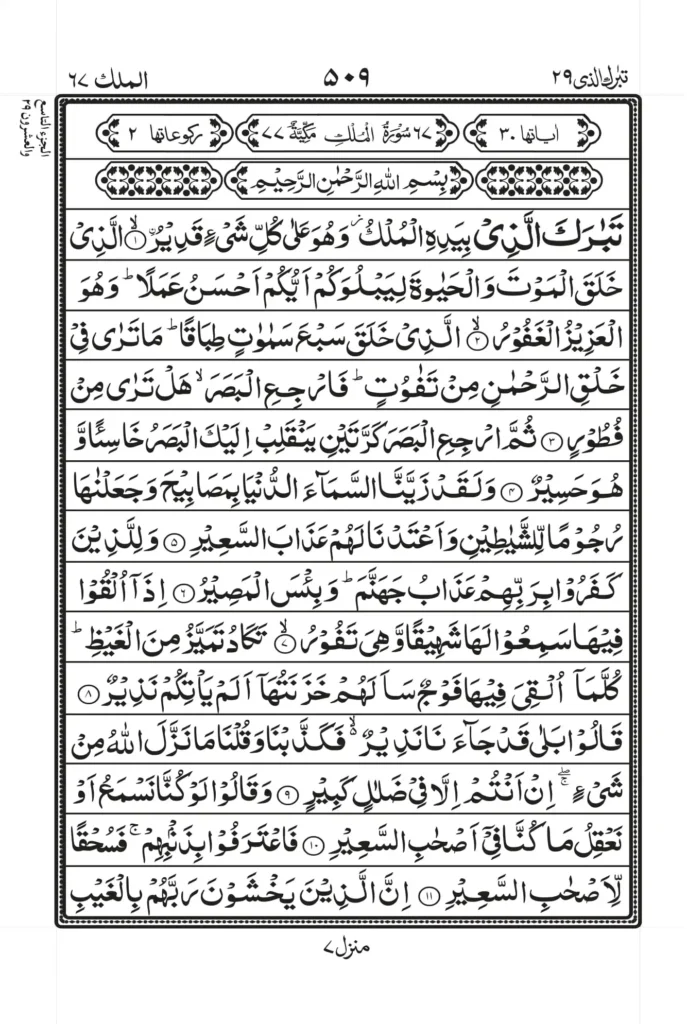 تبٰرك الذی ٢٩ ٥٠٩ الملك ٦٧
الجزء التاسع والعشرون ٢٩
اٰیاتها ٣٠ ٦٧ سُوْرَةُ الْمُلْكِ مَكِّیَّةٌ ٧٧ ركوعاتها ٢
بِسْمِ اللهِ الرَّحْمٰنِ الرَّحِیْمِ
تَبٰرَكَ الَّذِیْ بِیَدِهِ الْمُلْكُ ؗ وَهُوَ عَلٰی كُلِّ شَیْءٍ قَدِیْرُ ۨ ۙ﴿١﴾ الَّذِیْ
خَلَقَ الْمَوْتَ وَالْحَیٰوةَ لِیَبْلُوَكُمْ اَیُّكُمْ اَحْسَنُ عَمَلًا ؕ وَهُوَ
الْعَزِیْزُ الْغَفُوْرُ ۙ﴿٢﴾ الَّذِیْ خَلَقَ سَبْعَ سَمٰوٰتٍ طِبَاقًا ؕ مَا تَرٰی فِیْ
خَلْقِ الرَّحْمٰنِ مِنْ تَفٰوُتٍ ؕ فَارْجِعِ الْبَصَرَ ۙ هَلْ تَرٰی مِنْ
فُطُوْرٍ ﴿٣﴾ ثُمَّ ارْجِعِ الْبَصَرَ كَرَّتَیْنِ یَنْقَلِبْ اِلَیْكَ الْبَصَرُ خَاسِئًا وَّ
هُوَ حَسِیْرٌ ﴿٤﴾ وَلَقَدْ زَیَّنَّا السَّمَآءَ الدُّنْیَا بِمَصَابِیْحَ وَجَعَلْنٰهَا
رُجُوْمًا لِّلشَّیٰطِیْنِ وَاَعْتَدْنَا لَهُمْ عَذَابَ السَّعِیْرِ ﴿٥﴾ وَلِلَّذِیْنَ
كَفَرُوْا بِرَبِّهِمْ عَذَابُ جَهَنَّمَ ؕ وَبِئْسَ الْمَصِیْرُ ﴿٦﴾ اِذَاۤ اُلْقُوْا
فِیْهَا سَمِعُوْا لَهَا شَهِیْقًا وَّهِیَ تَفُوْرُ ۙ﴿٧﴾ تَكَادُ تَمَیَّزُ مِنَ الْغَیْظِ ؕ
كُلَّمَاۤ اُلْقِیَ فِیْهَا فَوْجٌ سَاَلَهُمْ خَزَنَتُهَاۤ اَلَمْ یَاْتِكُمْ نَذِیْرٌ ﴿٨﴾
قَالُوْا بَلٰی قَدْ جَآءَنَا نَذِیْرٌ ۙ۬ فَكَذَّبْنَا وَقُلْنَا مَا نَزَّلَ اللهُ مِنْ
شَیْءٍ ۖۚ اِنْ اَنْتُمْ اِلَّا فِیْ ضَلٰلٍ كَبِیْرٍ ﴿٩﴾ وَقَالُوْا لَوْ كُنَّا نَسْمَعُ اَوْ
نَعْقِلُ مَا كُنَّا فِیْۤ اَصْحٰبِ السَّعِیْرِ ﴿١٠﴾ فَاعْتَرَفُوْا بِذَنْۢبِهِمْ ۚ فَسُحْقًا
لِّاَصْحٰبِ السَّعِیْرِ ﴿١١﴾ اِنَّ الَّذِیْنَ یَخْشَوْنَ رَبَّهُمْ بِالْغَیْبِ
منزل ٧